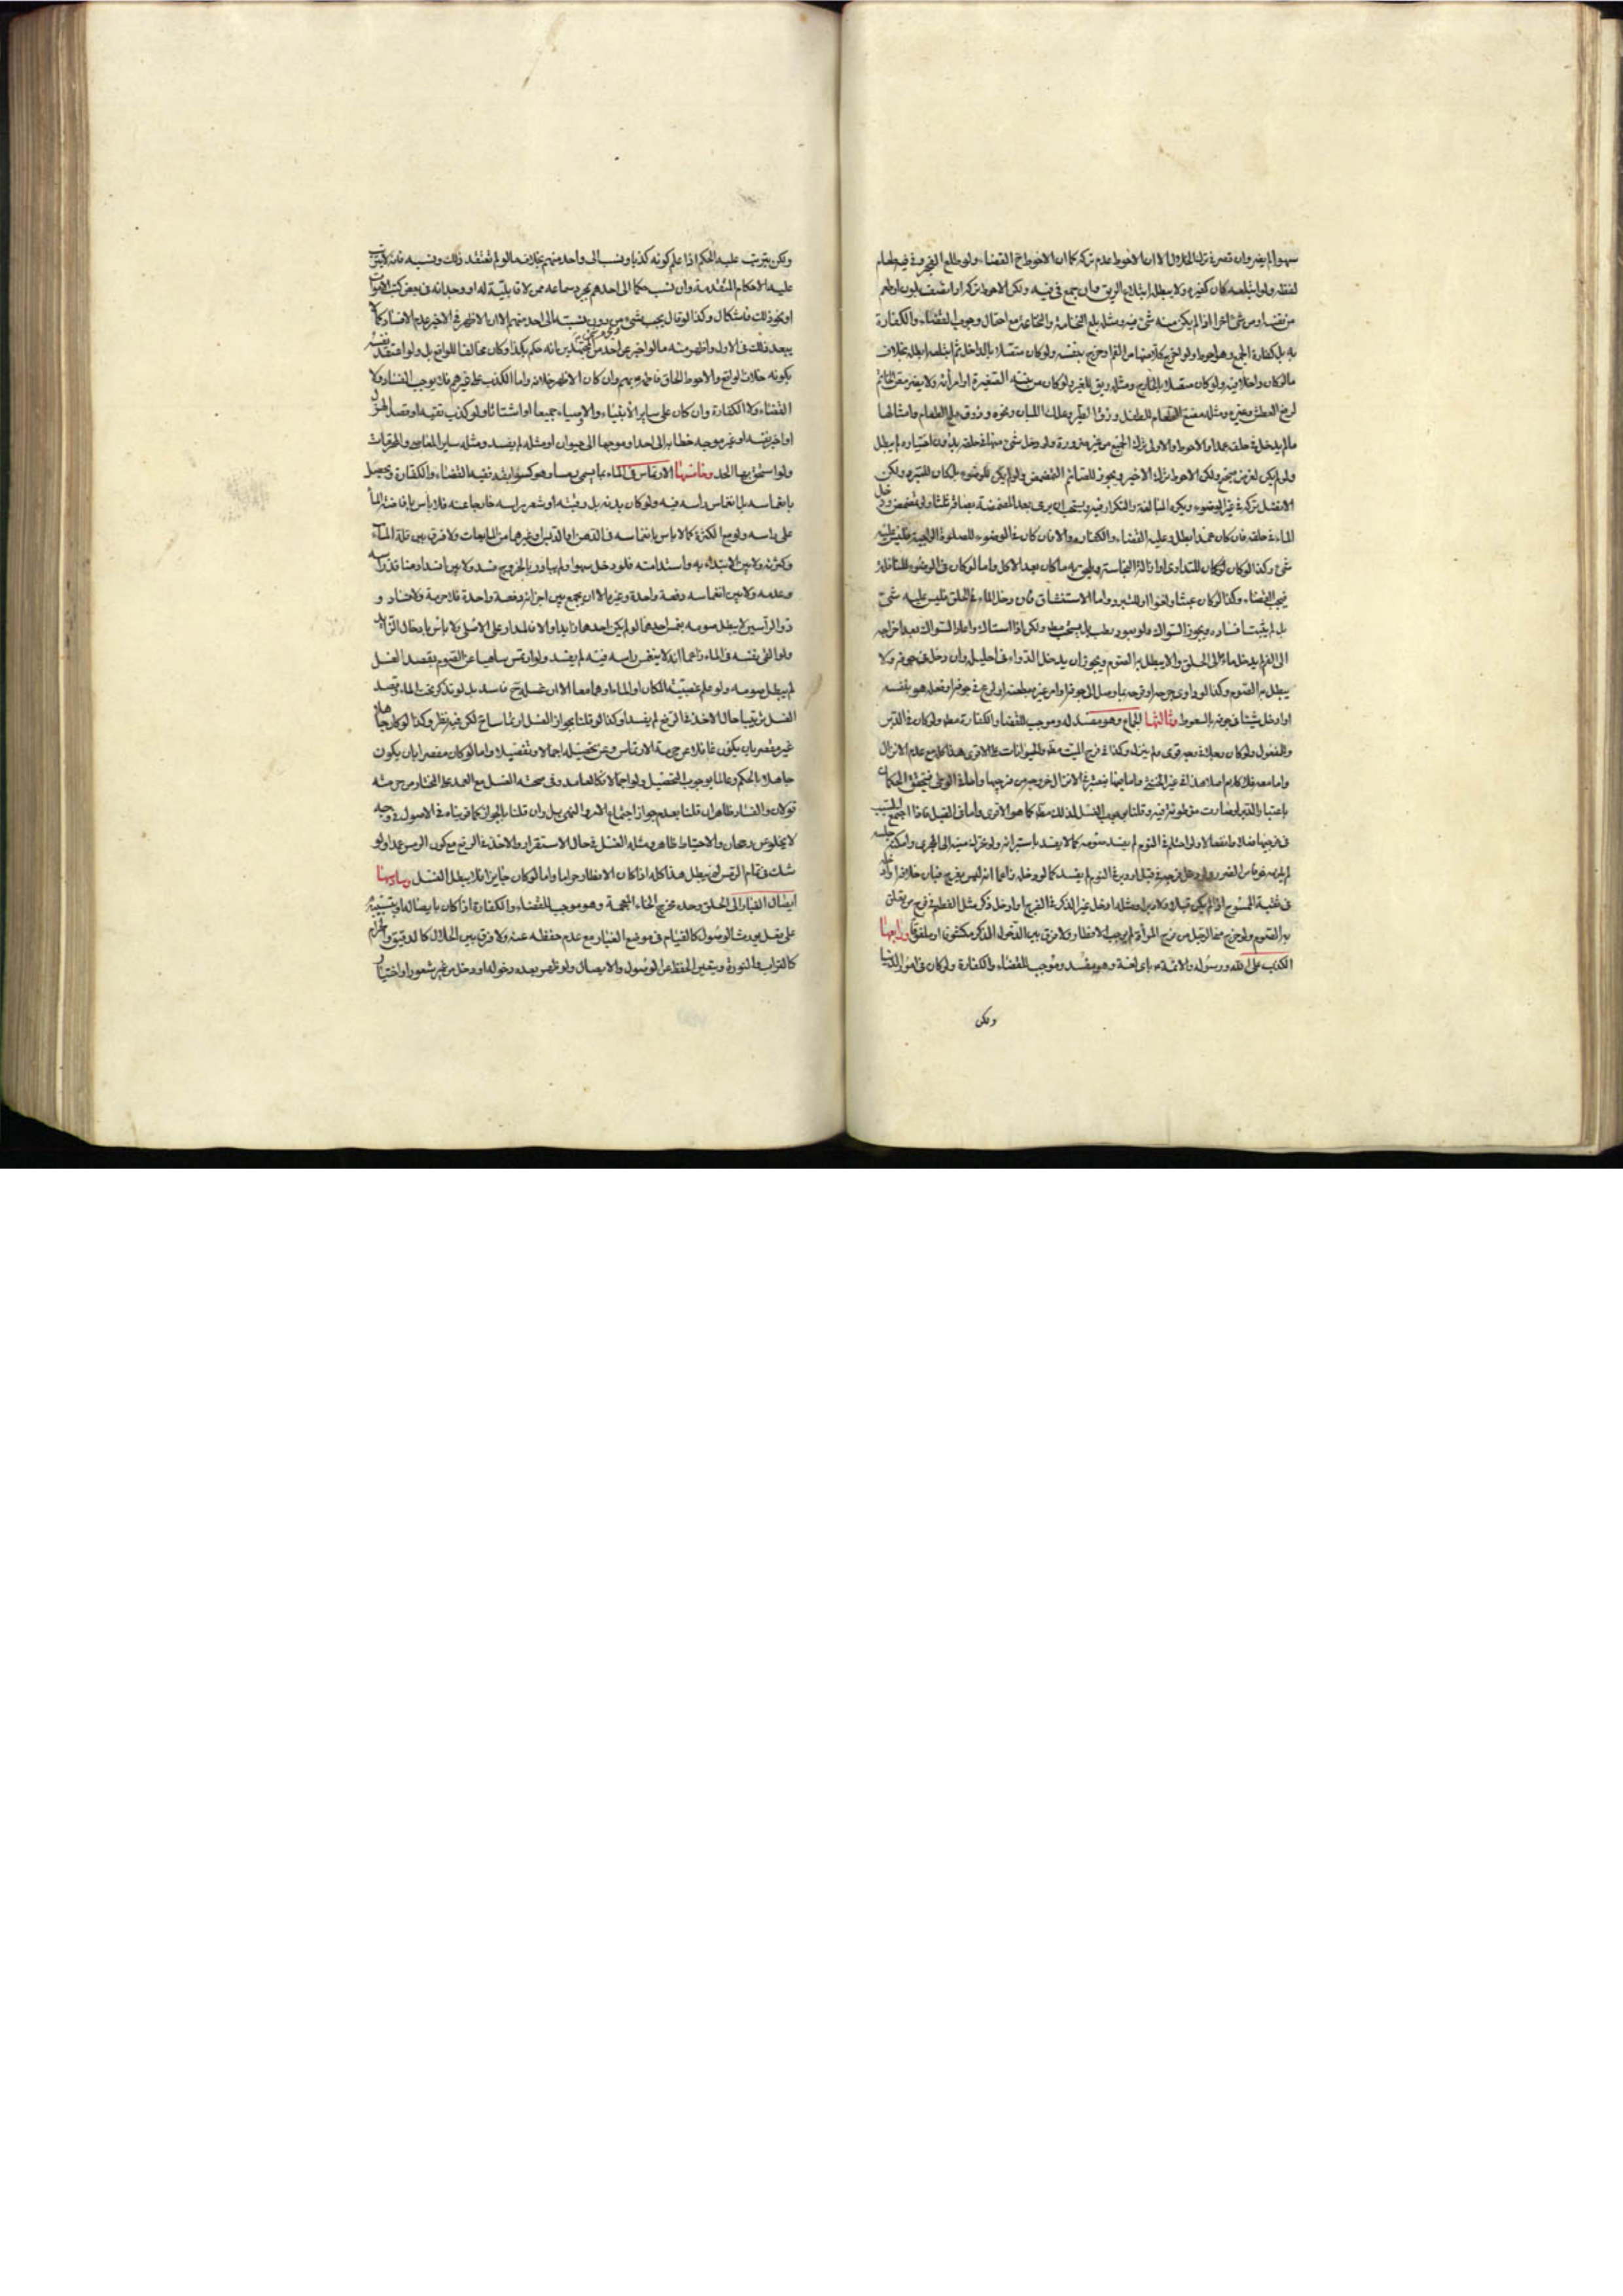 سهوا لم يضر وان قصر في ترك الخلال الا ان الاحوط عدم تركه كما ان الاحوط ح القضاء ولو طلع الفجر وفي فيه طعام
لفظه ولو ابتلعه كان كغيره ولا يبطل ابتلاع الريق وان جمع في فيه ولكن الاحوط تركه
من شئ اخر اذا لم يكن منه شئ فيه ومثله بلع النخامة والنخاعة مع احتمال وجوب القضاء والكفارة
به بل كفارة الجمع وهو احوط ولو خرج كل منهما من الفم او خرج بنفسه ولو كان متصلا بالداخل ثم ابتلعه ابطل بخلاف
ما لو كان داخلا فيه ولو كان متصلا بالخارج ومثله ريق الغير ولو كان من بنته الصغيرة او امرأته ولا يضر مص الخاتم
لرفع العطش وغيره ومثله مضغ الطعام للطفل وزق الطير وعلك اللبان ونحوه وذوق ملح الطعام وامثالها
ما لم يدخل في حلقه عمدا والاحوط والاولى ترك الجميع من غير ضرورة ولو دخل شئ منها في حلقه بدون اختياره لم يبطل
ولو لم يكن لغرض صحيح ولكن الاحوط ترك الاخير ويجوز للصائم المضمضة ولو لم يكن للوضوء بل كان للتبريد ولكن
الافضل تركه في غير الوضوء ويكره المبالغة والتكرار فيه ويستحب ان يرمى بعد المضمضة بصاقه ثلثا ولو تمضمض ودخل
الماء في حلقه فان كان عمدا ابطل وعليه القضاء والكفارة والا فان كان في الوضوء للصلوة الواجبة فليس عليه
شئ وكذا لو كان للتداوى او ازالة النجاسة ما كان بعد الاكل واما لو كان في الوضوء للنافلة
فيجب القضاء وكذا لو كان عبثا ولغوا او للتبرد واما الاستنشاق فان دخل الماء في الحلق فليس عليه شئ
بل لم يثبت افساده ويجوز السواك ولو بعود رطب بل يستحب مطلقا ولكن اذا استاك واعاد السواك بعد اخراجه
الى الفم لا يدخل مائه الى الحلق والا يبطل به الصوم ويجوز ان يدخل الدواء في احليله وان دخل في جوفه ولا
يبطل به الصوم وكذا لو داوى جرحه او قرحه بما وصل الى جوفه او امر غيره بطعنه او لوج في جوفه او فعله هو بنفسه
او ادخل شيئا في جوفه بالسعوط وثالثها الجماع وهو مفسد له وموجب للقضاء والكفارة مطلقا ولو كان في الدبر
والمفعول ولو كان ولم ينزل وكذا في فرج الميت مطلقا والحيوانات على الاقوى هذا كله مع عدم الانزال
واما معه فلا كلام اصلا هذا في غير الخنثى واما فيها فيعتبر في الانزال خروجه من فرجيها
باعتبار الدبر كما هو الاقوى واما في القبل فاذا اجتمع السبب
في فرجيها فعلا وانفعالا ولو احتلم في النوم لم يفسد صومه كما لا يفسد باستبرائه
لم يفسد كما لو دخل زاعما انه ليس بفرج فبان خلافه
في ثقبة الممسوح اذا لم يكن قبلا ولا دبرا ومثله ادخال غير الذكر في الفرج او ادخل ذكر
به الصوم ولو خرج مني الرجل من فرج المرأة لم يوجب الافطار ولا فرق بين ادخال الذكر مكشوفا او ملفقا ورابعها
الكذب على الله ورسوله والائمة باى لغة وهو مفسد وموجب للقضاء والكفارة ولو كان في امور الدنيا
ولكن
ولكن يترتب عليه الحكم اذا علم كونه كذبا ونسب الى واحد منهم بخلاف ما لو لم يعتقد ذلك ونسبه فانه لا يترتب
عليه الاحكام المتقدمة وان نسب حكما الى احدهم بمجرد سماعه ممن لا قابلية له او وجدانه في بعض كتب الاموات
او نحو ذلك فاشكال وكذا لو قال يجب شئ من دون نسبته الى احد منهم الا ان الاظهر في الاخير عدم الافساد كما
يبعد ذلك في الاول واظهر منه ما لو اخبر عن احد من المجتهدين بانه حكم بكذا وكان مخالفا للواقع بل ولو اعتقد نفسه
بكونه خلاف الواقع والاحوط الحاق فاطمة بهم وان كان الاظهر خلافه واما الكذب على غيرهم فلا يوجب الفساد ولا
القضاء ولا الكفارة وان كان على ساير الانبياء والاوصياء جميعا او اشتاتا ولو كذب تقية او قصد الهزل
او اخبر بنفسه او غير موجه خطابه الى احد او موجها الى حيوان او مثله لم يفسد ومثله ساير المعاصى والمحرمات
ولو استحق بها الحد وخامسها الارتماس في الماء بما يسمى رمسا وهو كسوابقه ففيه القضاء والكفارة ويحصل
بانغماسه بل بانغماس راسه فيه ولو كان بدنه بل رقبته او شعر راسه خارجا عنه فلا باس بافاضة الماء
على راسه ولو مع الكثرة كما لا باس بانغماسه في الدهن او الدبس او غيرهما من المايعات ولا فرق بين قلة الماء
وكثرته ولا بين الابتداء به واستدامته فلو دخل سهوا ولم يبادر بالخروج فسد ولا بين انسداد منافذ راسه
وعدمه ولا بين انغماسه دفعة واحدة وغيره الا ان يجمع بين اجزائه دفعة واحدة فلا حرمة ولا فساد و
ذو الرأسين لا يبطل صومه بغمس احدهما لو لم يكن احدهما زايدا والا فالمدار على الاصل ولا بأس بادخال الزايد
ولو القى نفسه في الماء زاعما انه لا ينغمس راسه فيه لم يفسد ولو ارتمس ساهيا عن الصوم بقصد الغسل
لم يبطل صومه ولو علم غصبية المكان او الماء او هما معا الا ان غسله ح فاسد بل لو تذكر تحت الماء وقصد
الغسل ترتيبا حال الاخذ في الرفع لم يفسد وكذا لو قلنا بجواز الغسل ارتماسا ح لكن فيه نظر وكذا لو كان جاهلا
غير مقصر بان يكون غافلا عن حرمة الارتماس وعن تحصيله اجمالا وتفصيلا واما لو كان مقصرا بان يكون
جاهلا بالحكم وعالما بوجوب التحصيل ولو اجمالا فكالعامد وفي صحة الغسل مع العمد
قولان والفساد ظاهر ان قلنا بعدم جواز اجتماع الامر والنهى بل وان قلنا بالجواز كما قويناه في الاصول في وجه
لا يخلو عن رجحان والاحتياط ظاهر ومثله الغسل في حال الاستقرار والاخذ في الرفع مع كون الرمس عمدا ولو
شك في تمام الرمس لم يبطل هذا كله اذا كان الافطار حراما واما لو كان جايزا فلا يبطل الغسل وسادسها
ايصال الغبار الى الحلق وحده مخرج الخاء المعجمة وهو موجب للقضاء والكفارة اذا كان بايصاله او بتسبيبه
على فعل يورث الوصول كالقيام في موضع الغبار مع عدم حفظه عنه ولا فرق بين الحلال كالدقيق والحرام
كالتراب والنورة ويتعين الحفظ عن الوصول والايصال ولو ظهر بعده دخوله او دخل من غير شعور او اختيار